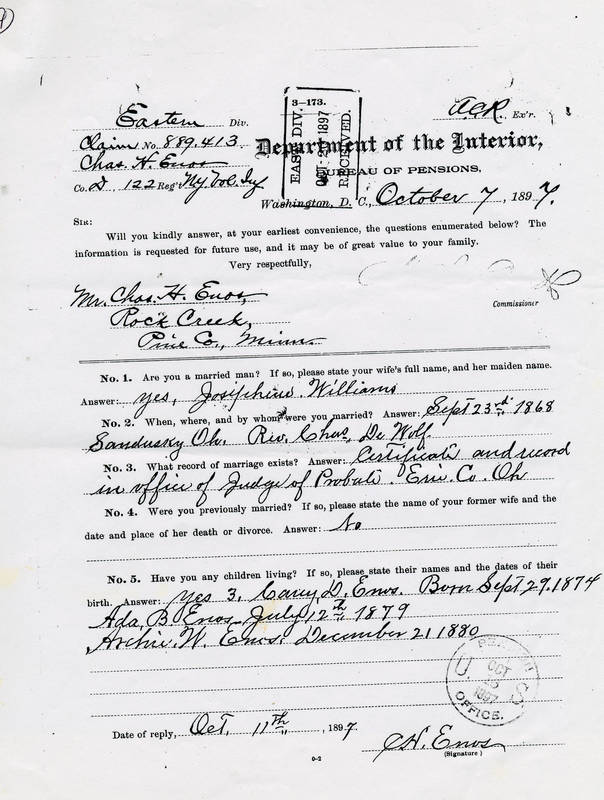 Eastern Div.
3—173.
A.C.R. Ex'r.
Claim No. 889.413
Chas. H. Enos
Co. D, 122 Reg't Ny Vol. Inf
EAST'N DIV.
OCT 1897
RECEIVED.
Department of the Interior,
BUREAU OF PENSIONS,
Washington, D. C., October 7, 1897.
SIR:
Will you kindly answer, at your earliest convenience, the questions enumerated below? The
information is requested for future use, and it may be of great value to your family.
Very respectfully,
Commissioner
Mr. Chas. H. Enos,
Rock Creek,
Pine Co., Minn.
No. 1. Are you a married man? If so, please state your wife's full name, and her maiden name.
Answer: yes, Josiphine Williams
No. 2. When, where, and by whom were you married? Answer: Sept 23rd 1868
Sandusky Oh. Rev. Chas. De Wolf
No. 3. What record of marriage exists? Answer: Certificate and record
in office of Judge of Probate Erie. Co. Oh
No. 4. Were you previously married? If so, please state the name of your former wife and the
date and place of her death or divorce. Answer: No
No. 5. Have you any children living? If so, please state their names and the dates of their
birth. Answer: yes 3, D. Enos. Born Sept 29. 1874
Ada, B Enos July 12th 1879
Archie. W. Enos. December 21 1880
U. S. PENSION OFFICE.
OCT 1897
Date of reply, Oct. 11th, 1897.
C H. Enos
(Signature)
0-2